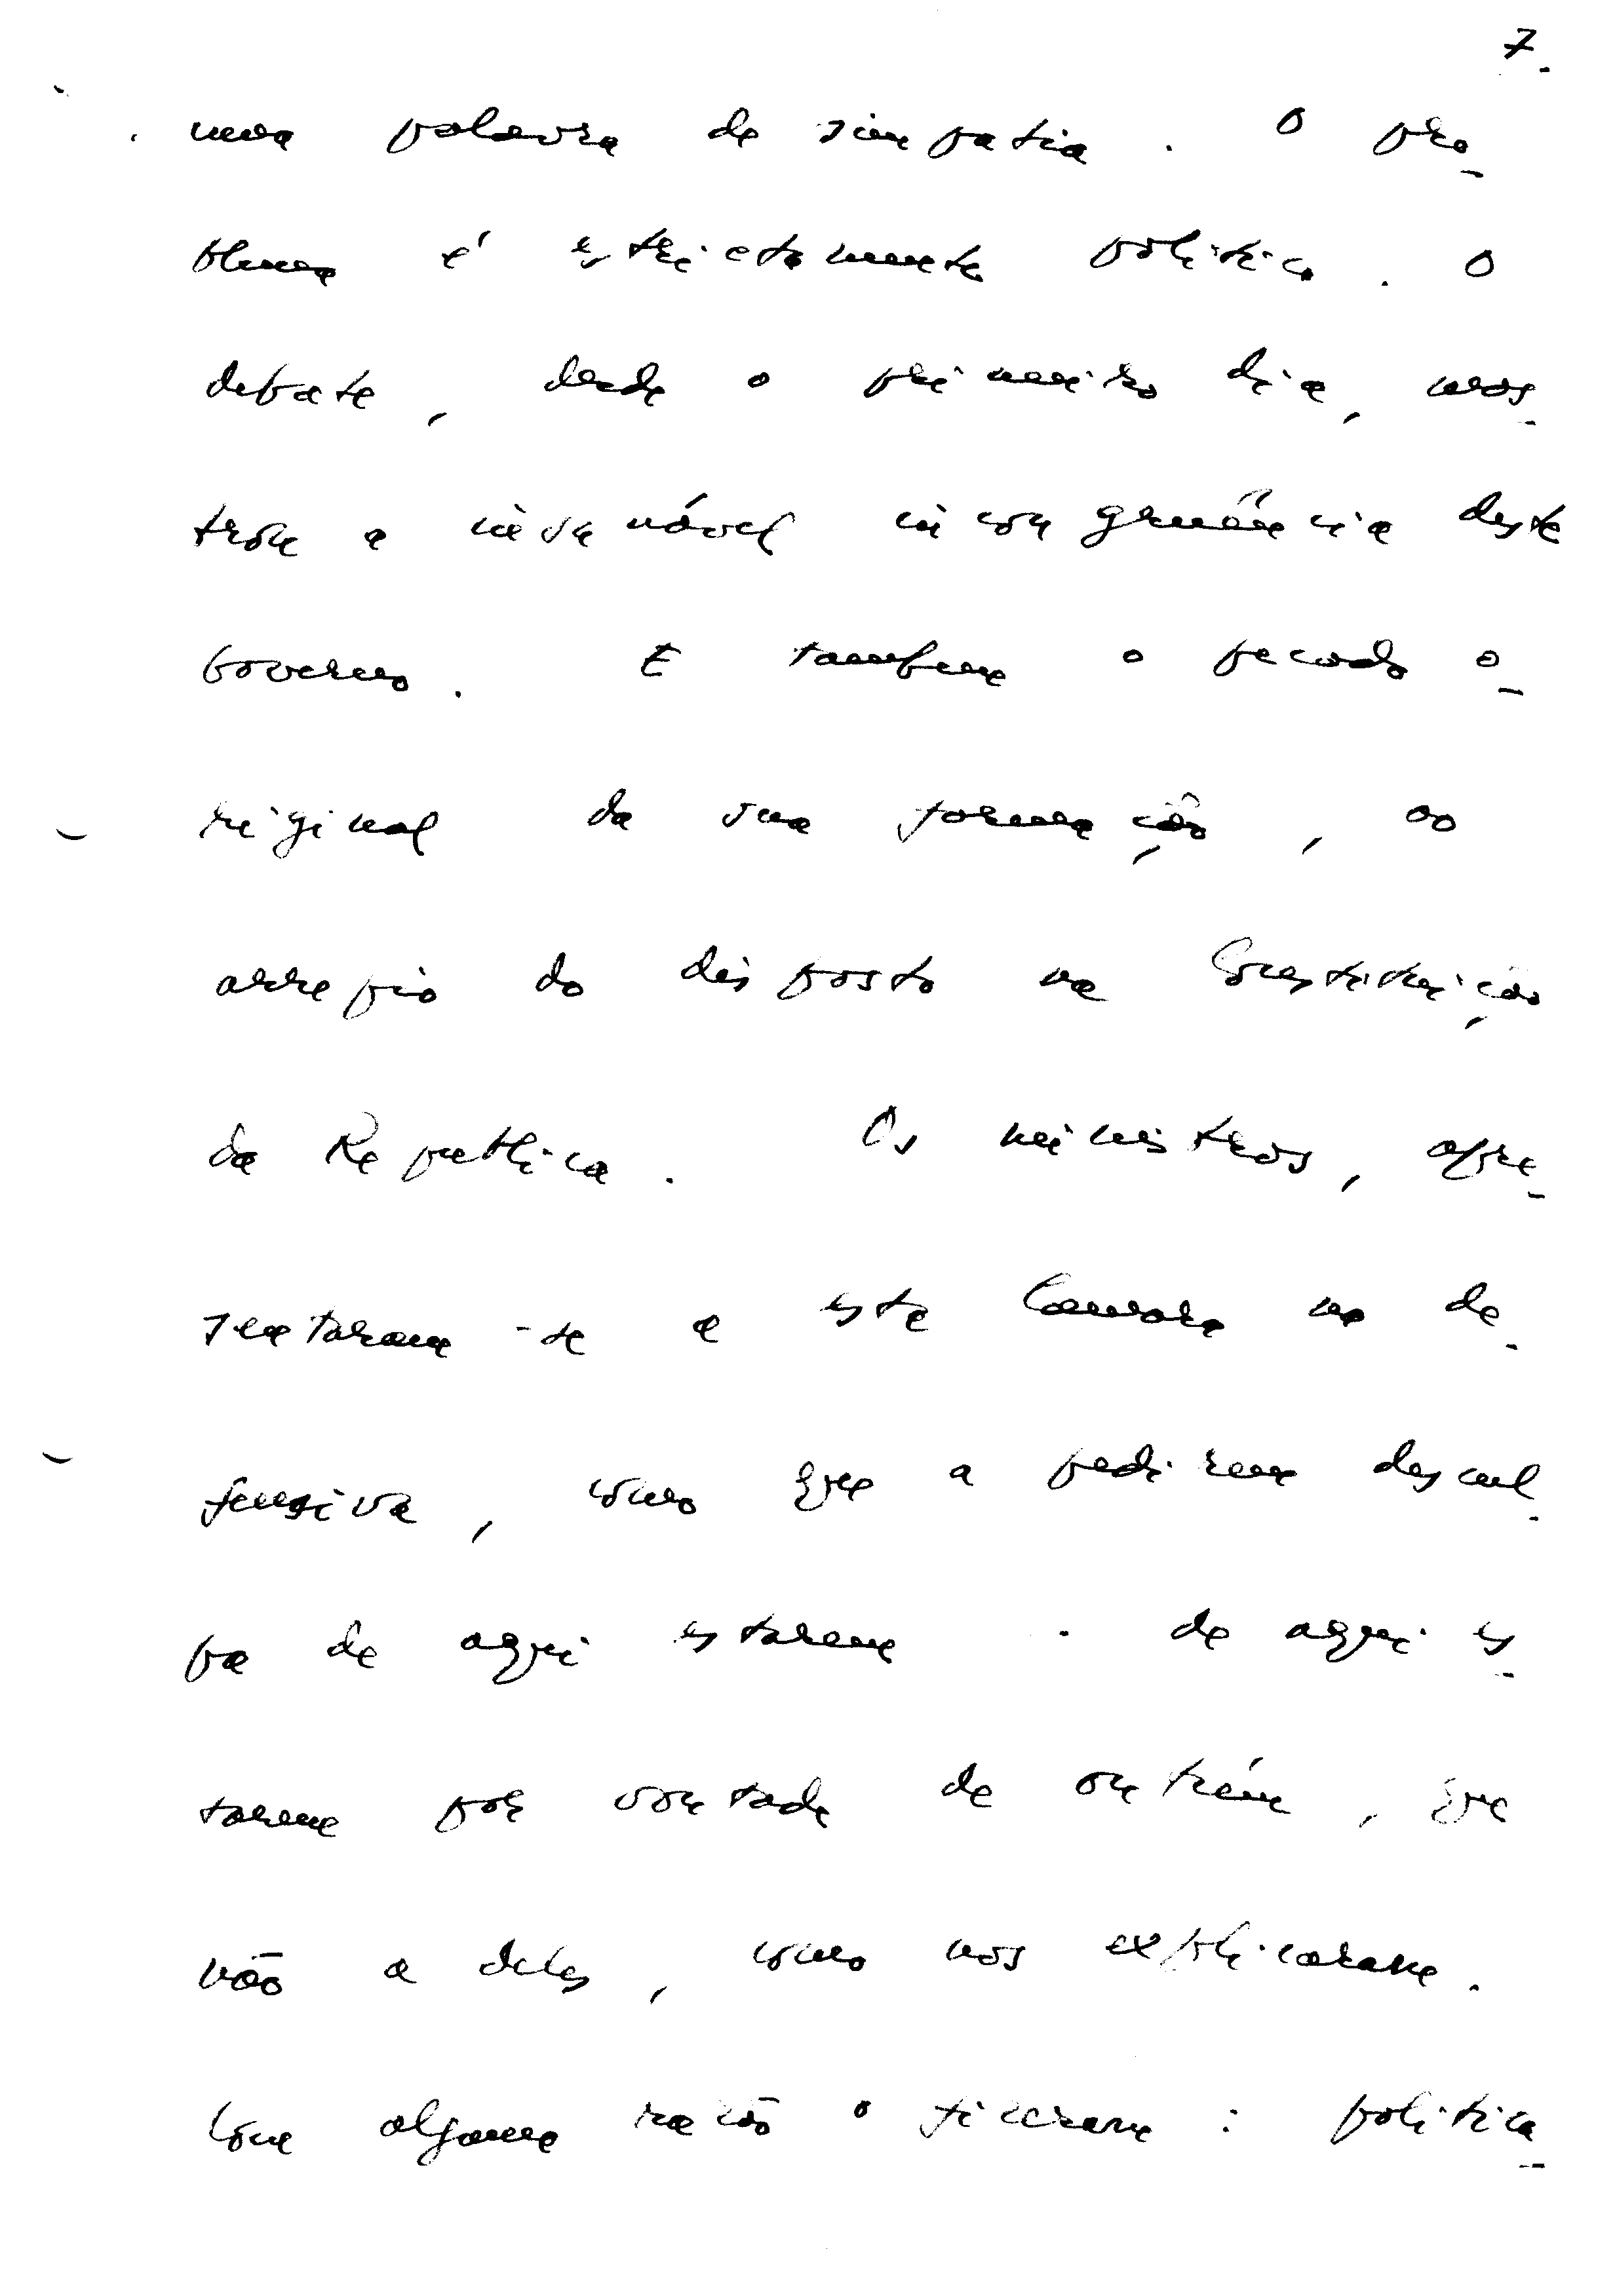 7.
uma palavra de simpatia. O pro-
blema é estrictamente politico. O
debate, desde o primeiro dia, mos-
trou a insanável incongruência deste
Governo. E tambem o pecado o-
riginal da sua formação, ao
arrepio do disposto na Constituição
da Republica. Os ministros, apre-
sentaram-se a esta Camara na de-
fensiva, como que a pedirem descul-
pa de aqui estarem. de aqui es-
tarem por vontade de outrém, que
não a deles, como nos explicaram.
Com alguma razão o fizeram: politica-